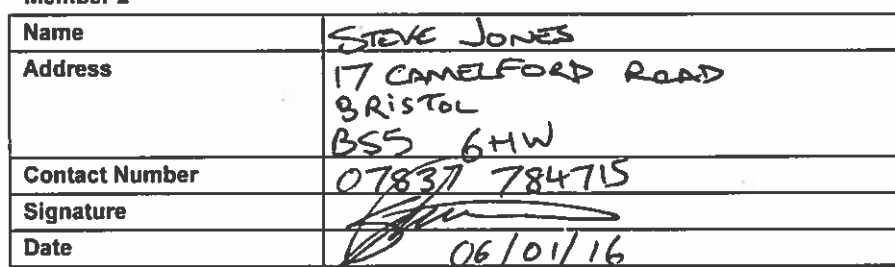 Member 2
Name STEVE JONES
Address 17 CAMELFORD ROAD
BRISTOL
BS5 6HW
Contact Number 07837 784715
Signature
Date 06/01/16